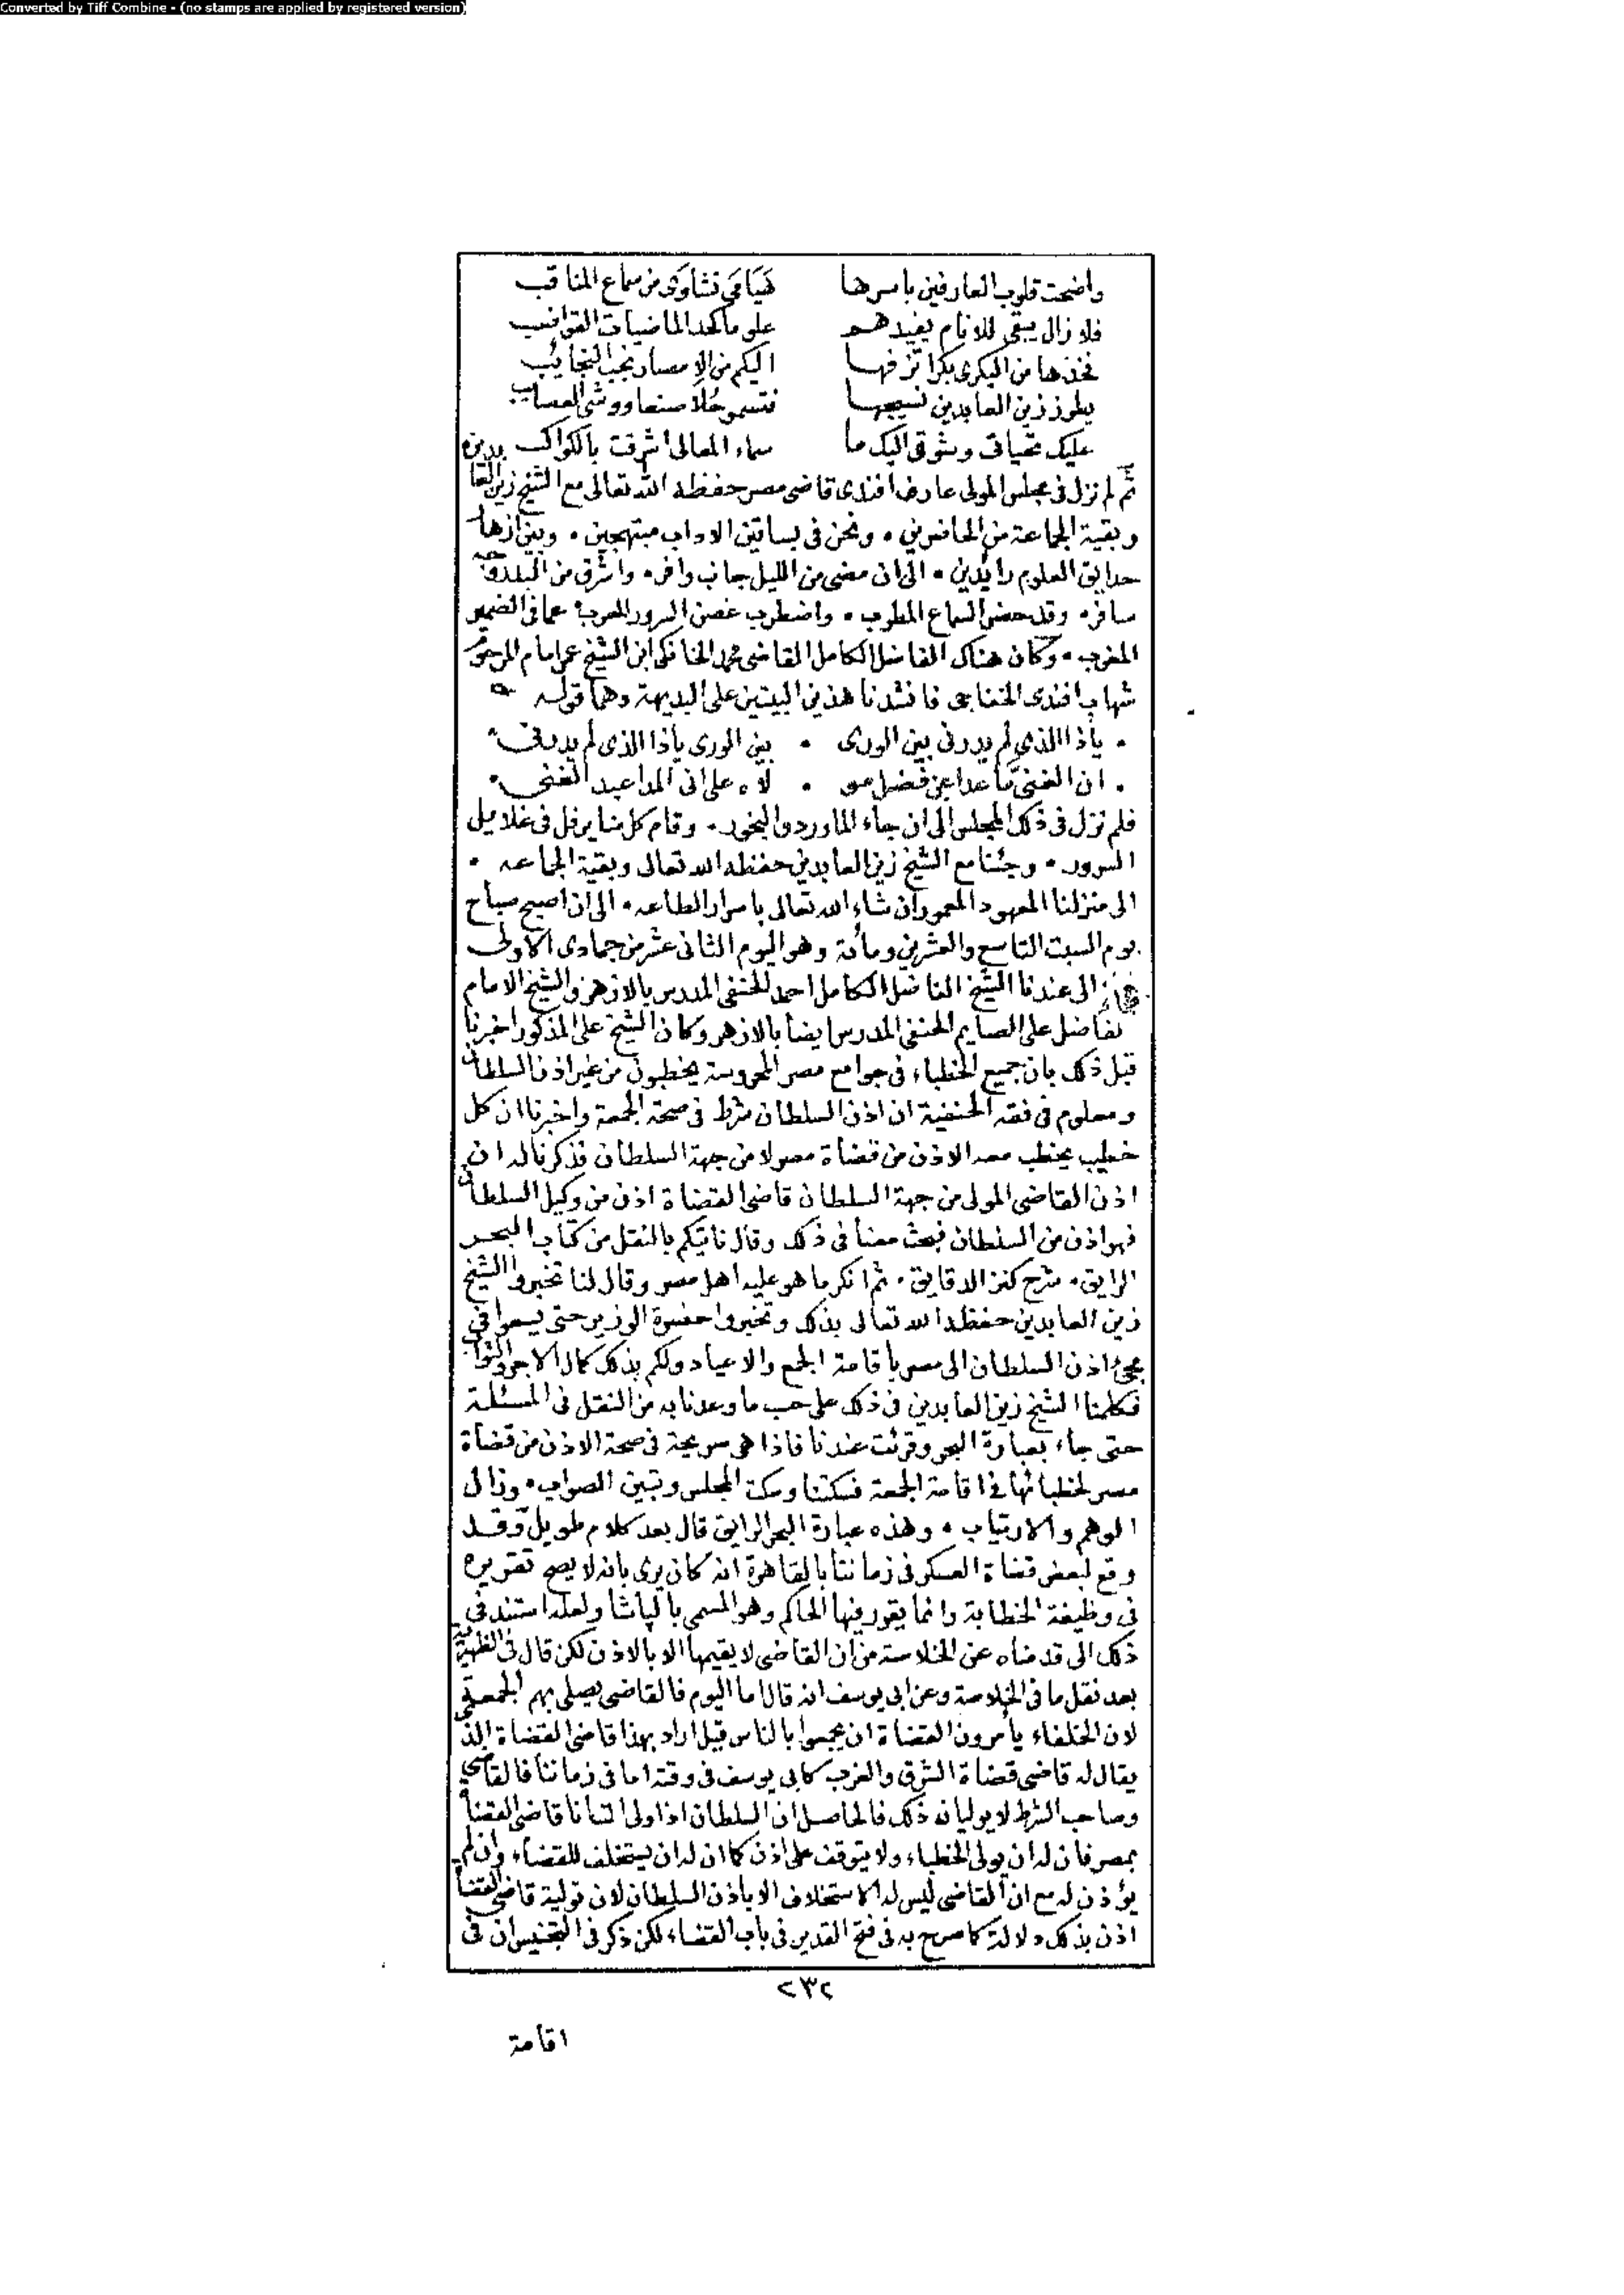 Converted by Tiff Combine - (no stamps are applied by registered version)
واضحت قلوب العارفين باسرها هَيَامَى نشاوَى من سماع المناقب
فلا زال يبقى للانام يفيدهم علوما كحد الماضيات القواضب
فخذها من البكرى بكرا تزفها اليكم من الامصار نجب النجائب
يطرز زين العابدين نسيجها فتسمو حُلا صنعا ووشى العصائب
عليك تحياتى وشوقى اليك ما سماء المعالى اشرقت بالكواكب
ثم لم نزل فى مجلس المولى عارف افندى قاضى مصر حفظه الله تعالى مع الشيخ زين العابدين
وبقية الجماعة من الحاضرين • ونحن فى بساتين الاداب مبتهجين • وبين ازهار
حدايق العلوم رائدين • الى ان مضى من الليل جانب وافر • واشرق من البدر وجه
سافر • وقد حضر السماع المطرب • واضطرب غصن السرور المعرب • عما فى الضمير
المغرب • وكان هناك الفاضل الكامل القاضى محمد الخانكى ابن الشيخ عمر امام المرحوم
شهاب افندى الخفاجى فانشدنا هذين البيتين على البديهة وهما قوله
• يأذا الذى لم يدرنى بين الورى • بين الورى يأذا الذى لم يدرنى •
• ان الغنى ما عدا عن فضل مو • لاه على انى المدا عبد الغنى •
فلم نزل فى ذلك المجلس الى ان جاء الماورد والبخور • وقام كل منا يرفل فى غلايل
السرور • وجئنا مع الشيخ زين العابدين حفظه الله تعالى وبقية الجماعه •
الى منزلنا المعهود المعمور ان شاء الله تعالى باسرار الطاعه • الى ان اصبح صباح
يوم السبت التاسع والعشرين ومائة وهو اليوم الثانى عشر من جمادى الاولى
فجاء الى عندنا الشيخ الفاضل الكامل احمد الحنفى المدرس بالازهر والشيخ الامام
الفاضل على الصايم الحنفى المدرس ايضا بالازهر وكان الشيخ على المذكور اخبرنا
قبل ذلك بان جميع الخطباء فى جوامع مصر المحروسة يخطبون من غير اذن السلطان
ومعلوم فى فقه الحنفية ان اذن السلطان شرط فى صحة الجمعة واخبرنا ان كل
خطيب يخطب معه الاذن من قضاة مصر لا من جهة السلطان فذكرنا له ان
اذن القاضى المولى من جهة السلطان قاضى القضاة اذن من وكيل السلطان
فهو اذن من السلطان فبحث معنا فى ذلك وقال ناتيكم بالنقل من كتاب البحر
الرايق • شرح كنز الدقايق • ثم انكر ما هو عليه اهل مصر وقال لنا تخبروا الشيخ
زين العابدين حفظه الله تعالى بذلك وتخبروا حضرة الوزير حتى يسعوا فى
مجئ اذن السلطان الى مصر باقامة الجمع والاعياد ولكم بذلك كمال الاجر والثواب
فكلمنا الشيخ زين العابدين فى ذلك على حسب ما وعدنا به من النقل فى المسئلة
حتى جاء بعبارة البحر وقرئت عندنا فاذا هى صريحة فى صحة الاذن من قضاة
مصر لخطبائها فى اقامة الجمعة فسكتنا وسكت المجلس وتبين الصواب • وزال
الوهم والارتياب • وهذه عبارة البحر الرايق قال بعد كلام طويل وقد
وقع لبعض قضاة العسكر فى زماننا بالقاهرة انه كان يرى بانه لا يصح تقريره
فى وظيفة الخطابة وانما يقرر فيها الحاكم وهو المسمى بالباشا ولعله استند فى
ذلك الى قدمناه عن الخلاصة من ان القاضى لا يقيمها الا بالاذن لكن قال فى الظهيرية
بعد نقل ما فى الخلاصة وعن ابى يوسف انه قال اما اليوم فالقاضى يصلى بهم الجمعة
لان الخلفاء يأمرون القضاة ان يجمعوا بالناس قيل اراد بهذا قاضى القضاة الذى
يقال له قاضى قضاة الشرق والغرب كابى يوسف فى وقته اما فى زماننا فالقاضى
وصاحب الشرط لا يوليان ذلك فالحاصل ان السلطان اذا ولى انسانا قاضى القضاة
بمصر فان له ان يولى الخطباء ولا يتوقف على اذن كما ان له ان يستخلف للقضاء وان لم
يؤذن له مع ان القاضى ليس له الاستخلاف الا باذن السلطان لان تولية قاضى القضاة
اذن بذلك دلالة كما صرح به فى فتح القدير فى باب القضاء لكن ذكر فى التجنيس ان فى
٢٣٢
اقامة